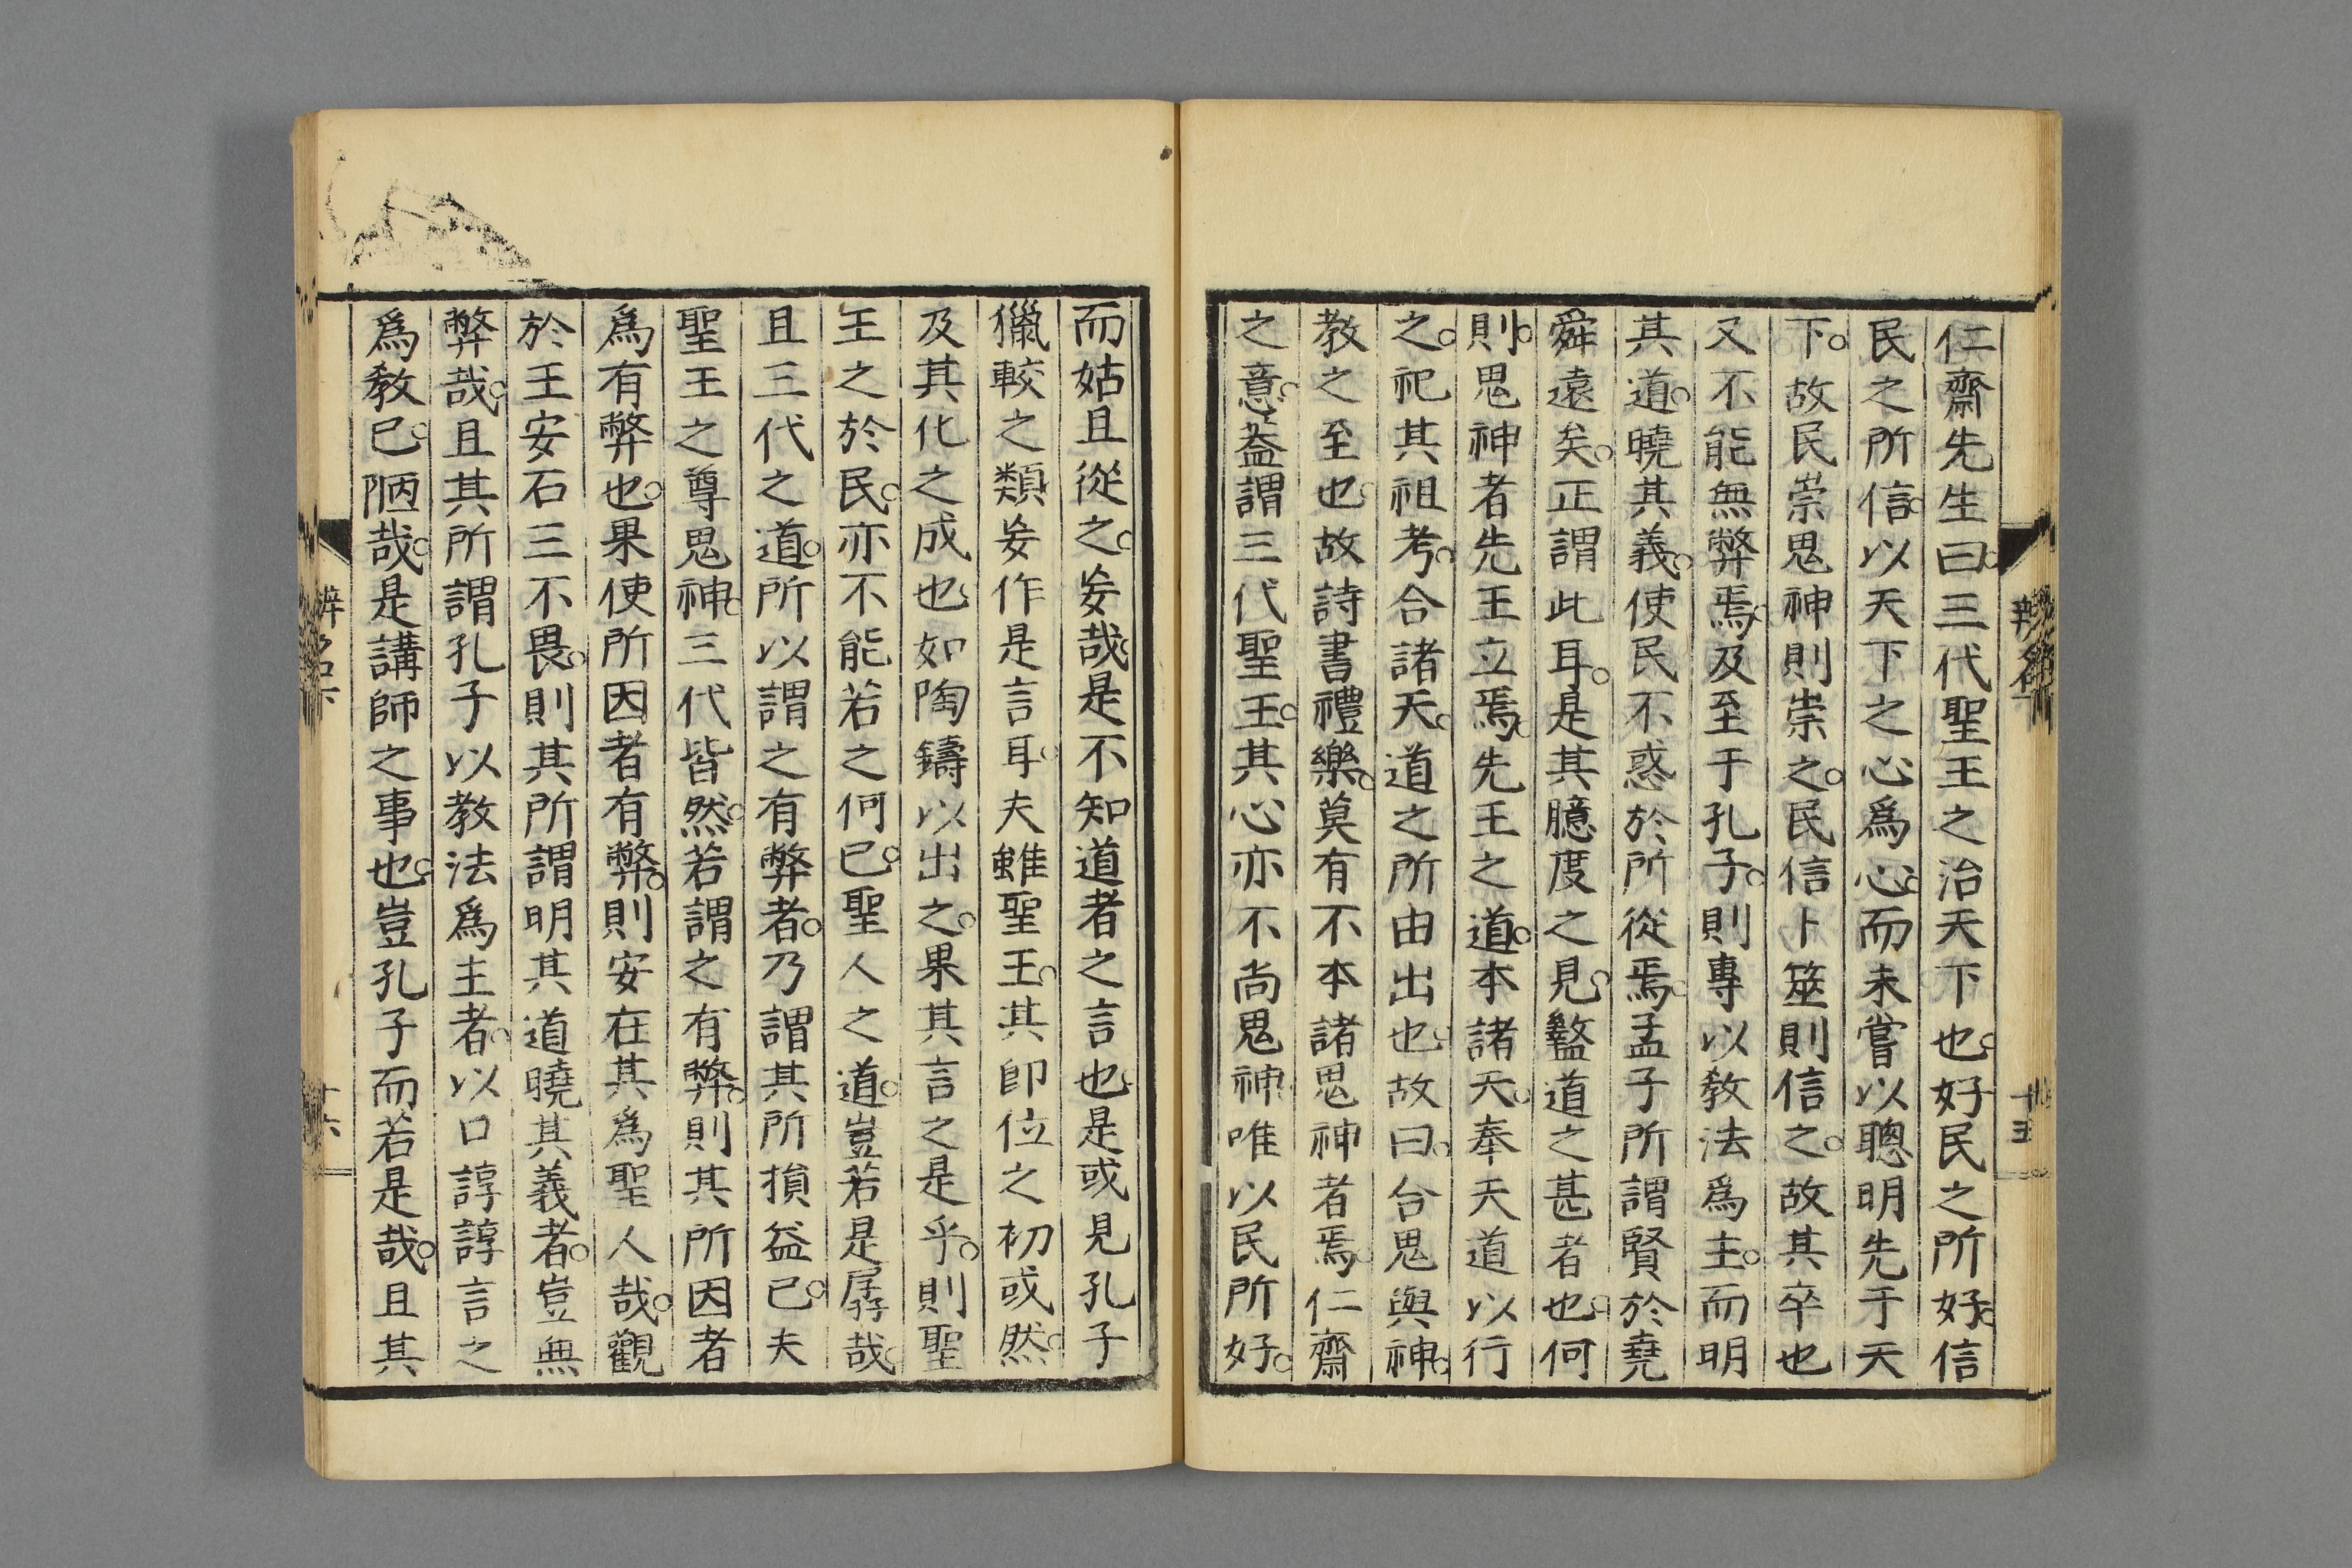 仁齋先生曰。三代聖王之治天下也。好民之所好。信
民之所信。以天下之心爲心。而未嘗以聰明先于天
下。故民崇鬼神則崇之。民信卜筮則信之。故其卒也
又不能無弊焉。及至于孔子。則專以教法爲主。而明
其道。曉其義。使民不惑於所從焉。孟子所謂賢於堯
舜遠矣。正謂此耳。是其臆度之見。盭道之甚者也。何
則。鬼神者先王立焉。先王之道。本諸天。奉天道以行
之。祀其祖考。合諸天。道之所由出也。故曰。合鬼與神。
教之至也。故詩書禮樂。莫有不本諸鬼神者焉。仁齋
之意。蓋謂三代聖王。其心亦不尚鬼神。唯以民所好。
辨名下
十五
而姑且從之。妄哉。是不知道者之言也。是或見孔子
獵較之類妄作是言耳。夫雖聖王。其卽位之初或然。
及其化之成也。如陶鑄以出之。果其言之是乎。則聖
王之於民。亦不能若之何已。聖人之道。豈若是孱哉。
且三代之道。所以謂之有弊者。乃謂其所損益已。夫
聖王之尊鬼神。三代皆然。若謂之有弊。則其所因者
爲有弊也。果使所因者有弊。則安在其爲聖人哉。觀
於王安石三不畏。則其所謂明其道曉其義者。豈無
弊哉。且其所謂孔子以教法爲主者。以口諄諄言之
爲教已。陋哉。是講師之事也。豈孔子而若是哉。且其
辨名下
十六